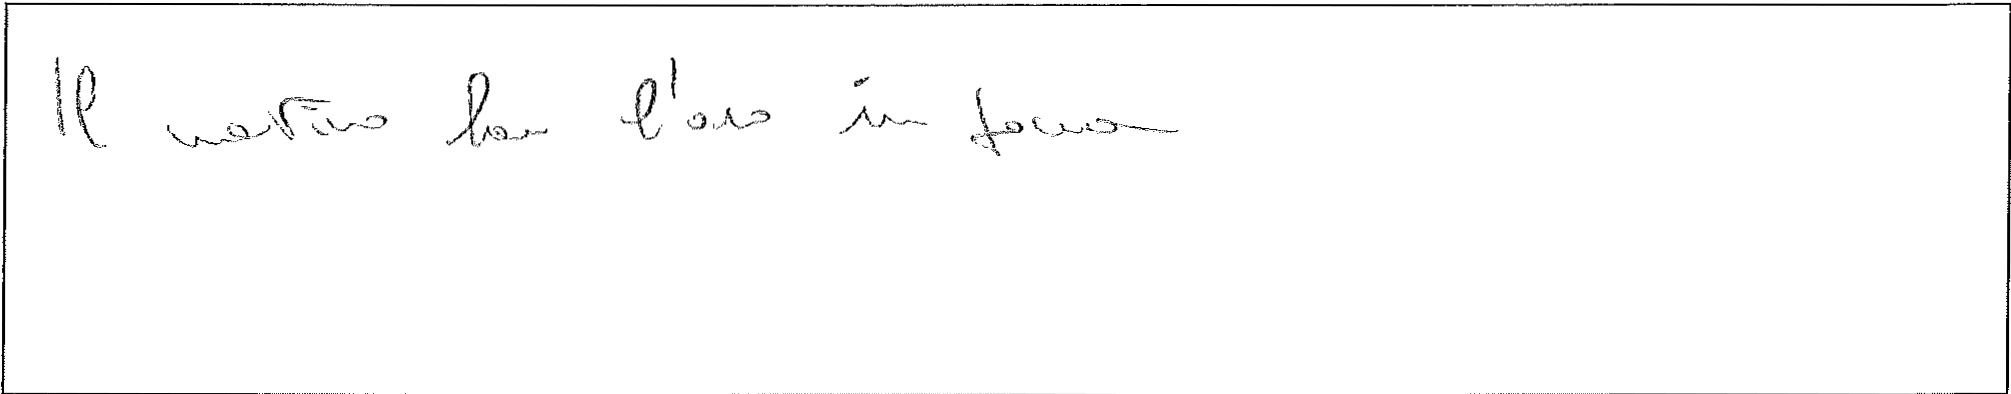 Il mattino ha l'oro in bocca